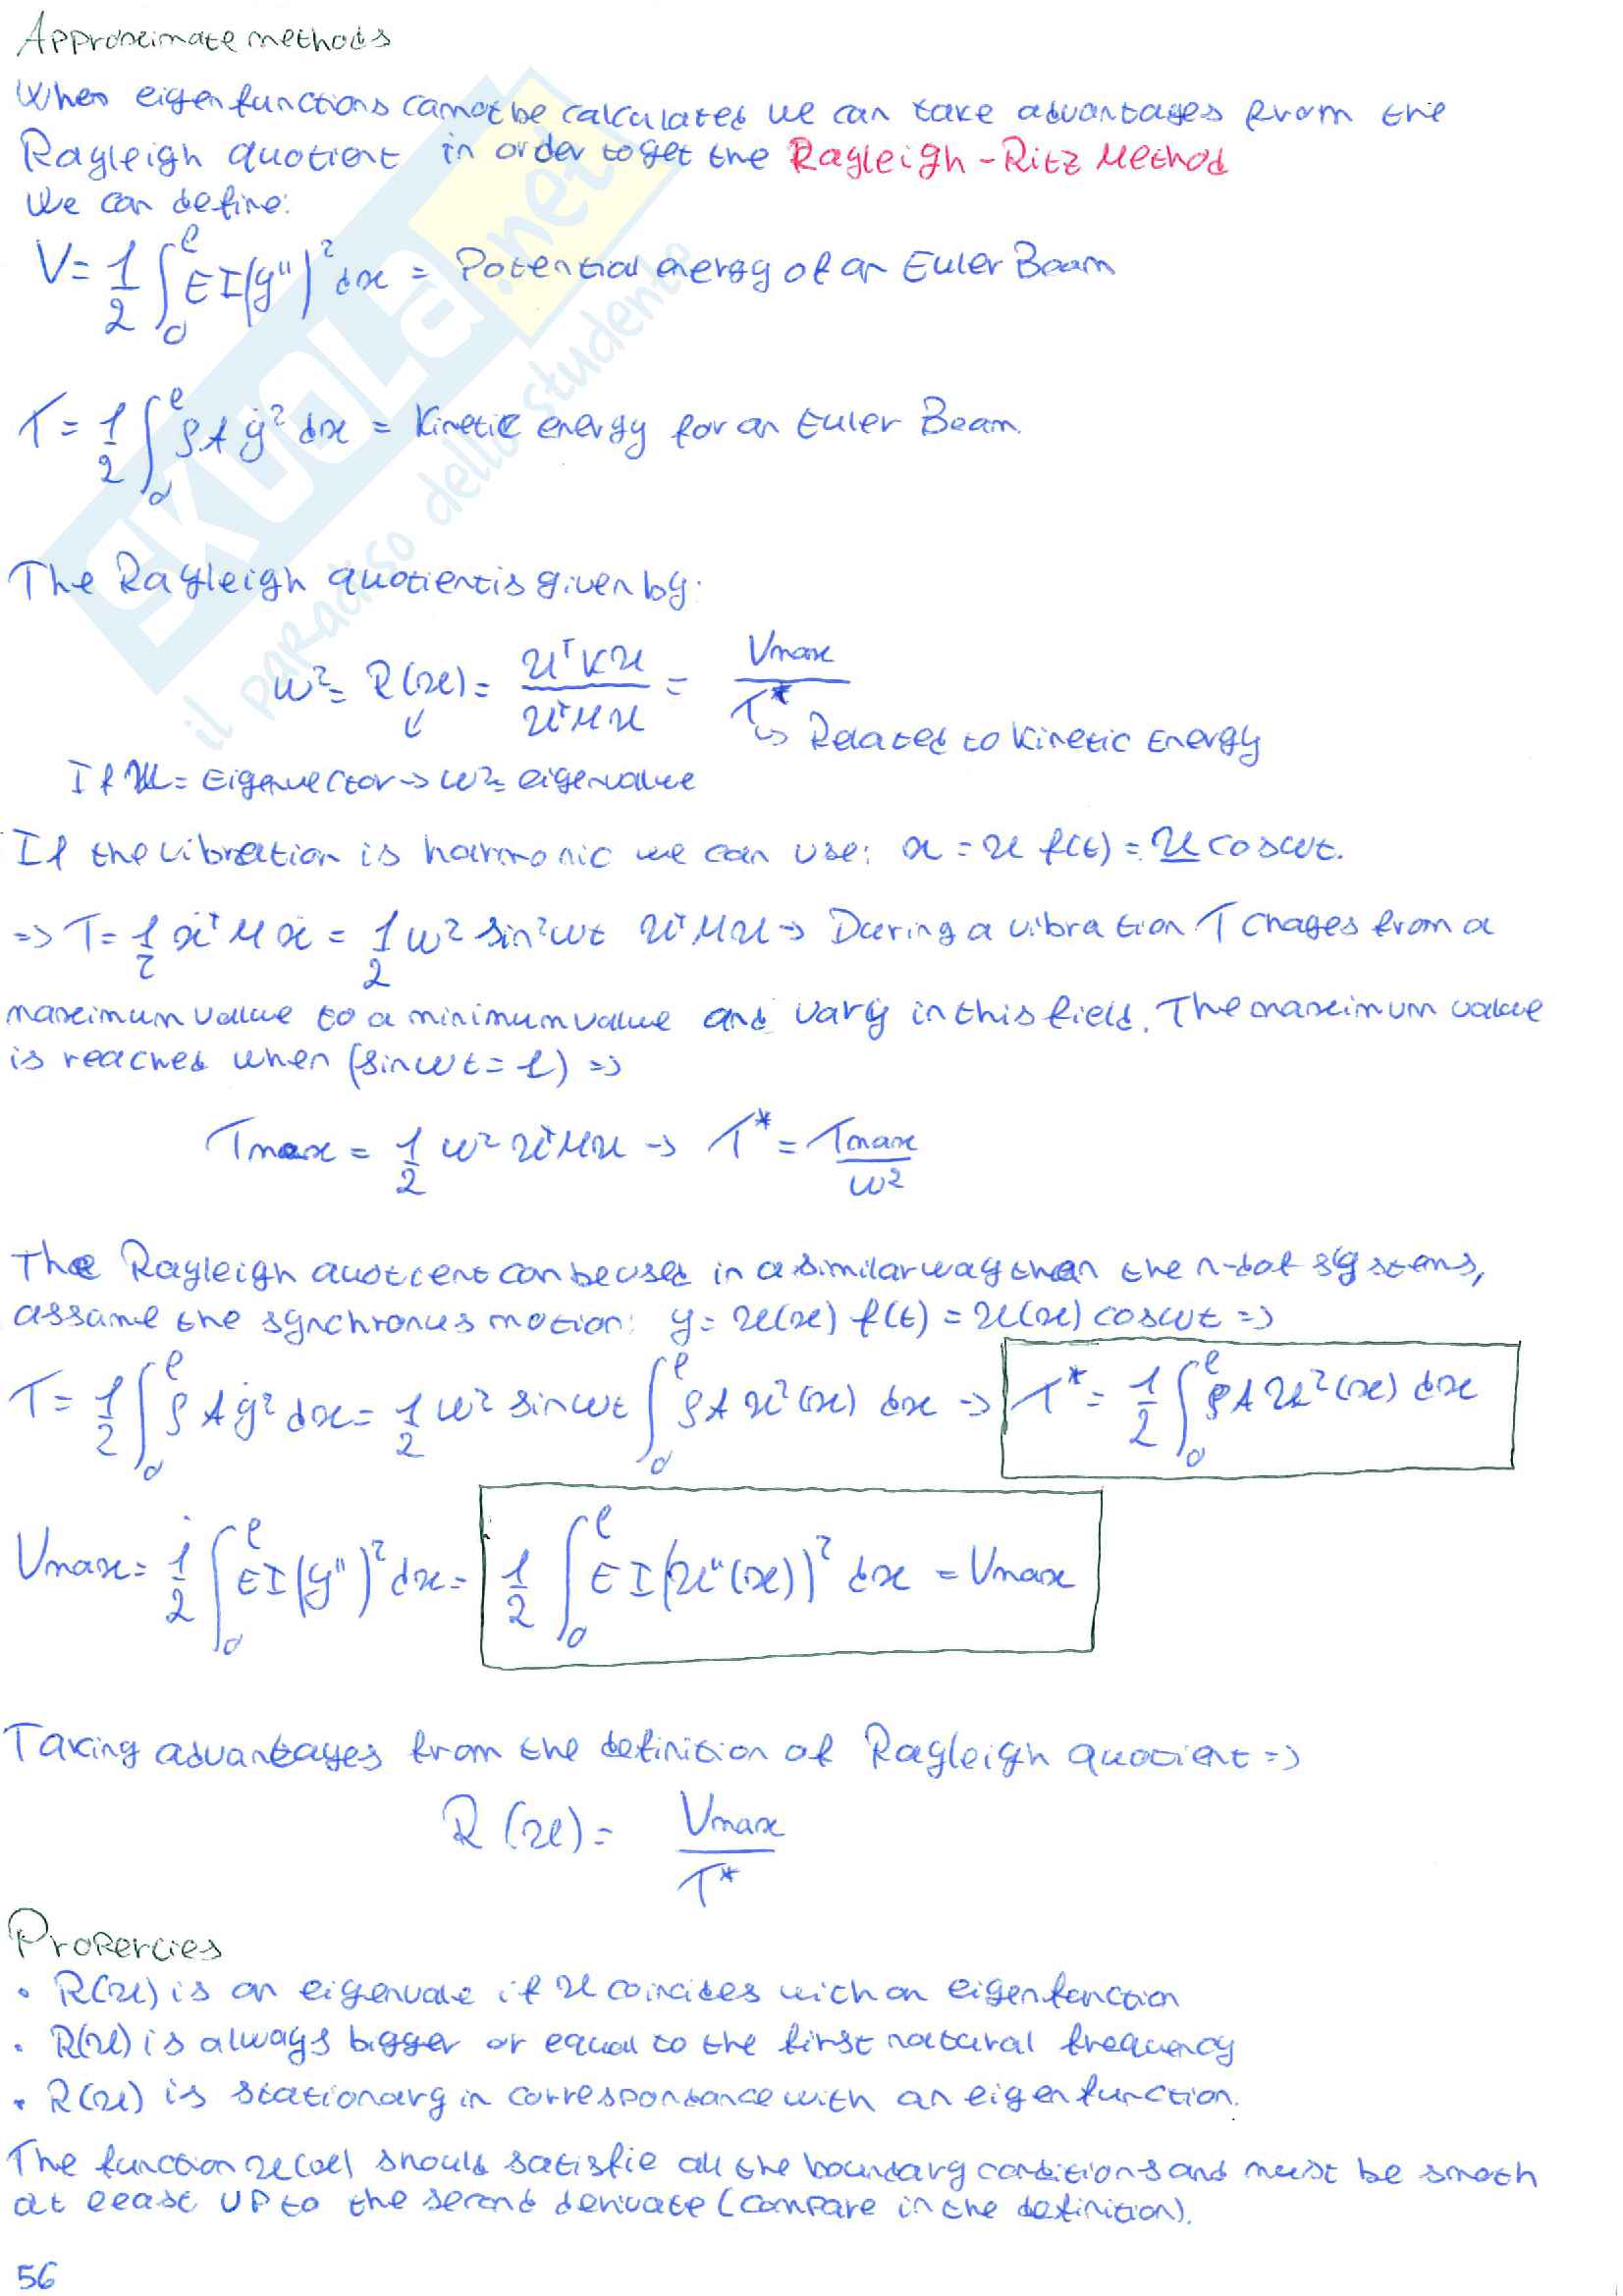 Approximate methods
When eigenfunctions cannot be calculated we can take advantages from the
Rayleigh quotient in order to get the Rayleigh-Ritz Method
We can define:
V = 1/2 ∫₀^ℓ EI(y'')² dx = Potential energy of an Euler Beam
T = 1/2 ∫₀^ℓ ρA ẏ² dx = Kinetic energy for an Euler Beam.
The Rayleigh quotient is given by:
ω² = R(x) = uᵀKu / uᵀMu = Vmax / T*
↳ Related to Kinetic Energy
If u = Eigenvector → ω² = eigenvalue
If the vibration is harmonic we can use: x = u f(t) = u cosωt.
=> T = 1/2 ẋᵀMẋ = 1/2 ω² sin²ωt uᵀMu → During a vibration T chages from a
maximum value to a minimum value and vary in this field. The maximum value
is reached when (sinωt = 1) =>
Tmax = 1/2 ω² uᵀMu → T* = Tmax / ω²
The Rayleigh quotient can be used in a similar way than the n-dof systems,
assume the synchronus motion: y = u(x) f(t) = u(x) cosωt =>
T = 1/2 ∫₀^ℓ ρAẏ² dx = 1/2 ω² sinωt ∫₀^ℓ ρA u²(x) dx → T* = 1/2 ∫₀^ℓ ρA u²(x) dx
Vmax = 1/2 ∫₀^ℓ EI(y'')² dx = 1/2 ∫₀^ℓ EI(u''(x))² dx = Vmax
Taking advantages from the definition of Rayleigh quotient =>
R(u) = Vmax / T*
Properties
• R(u) is an eigenvale if u coincides with an eigenfunction
• R(u) is always bigger or equal to the first natural frequency
• R(u) is stationary in correspondance with an eigenfunction.
The function u(x) should satisfie all the boundary conditions and must be smoth
at least up to the second derivate (compare in the definition).
56
SKUOLA.net
il paradiso dello studente